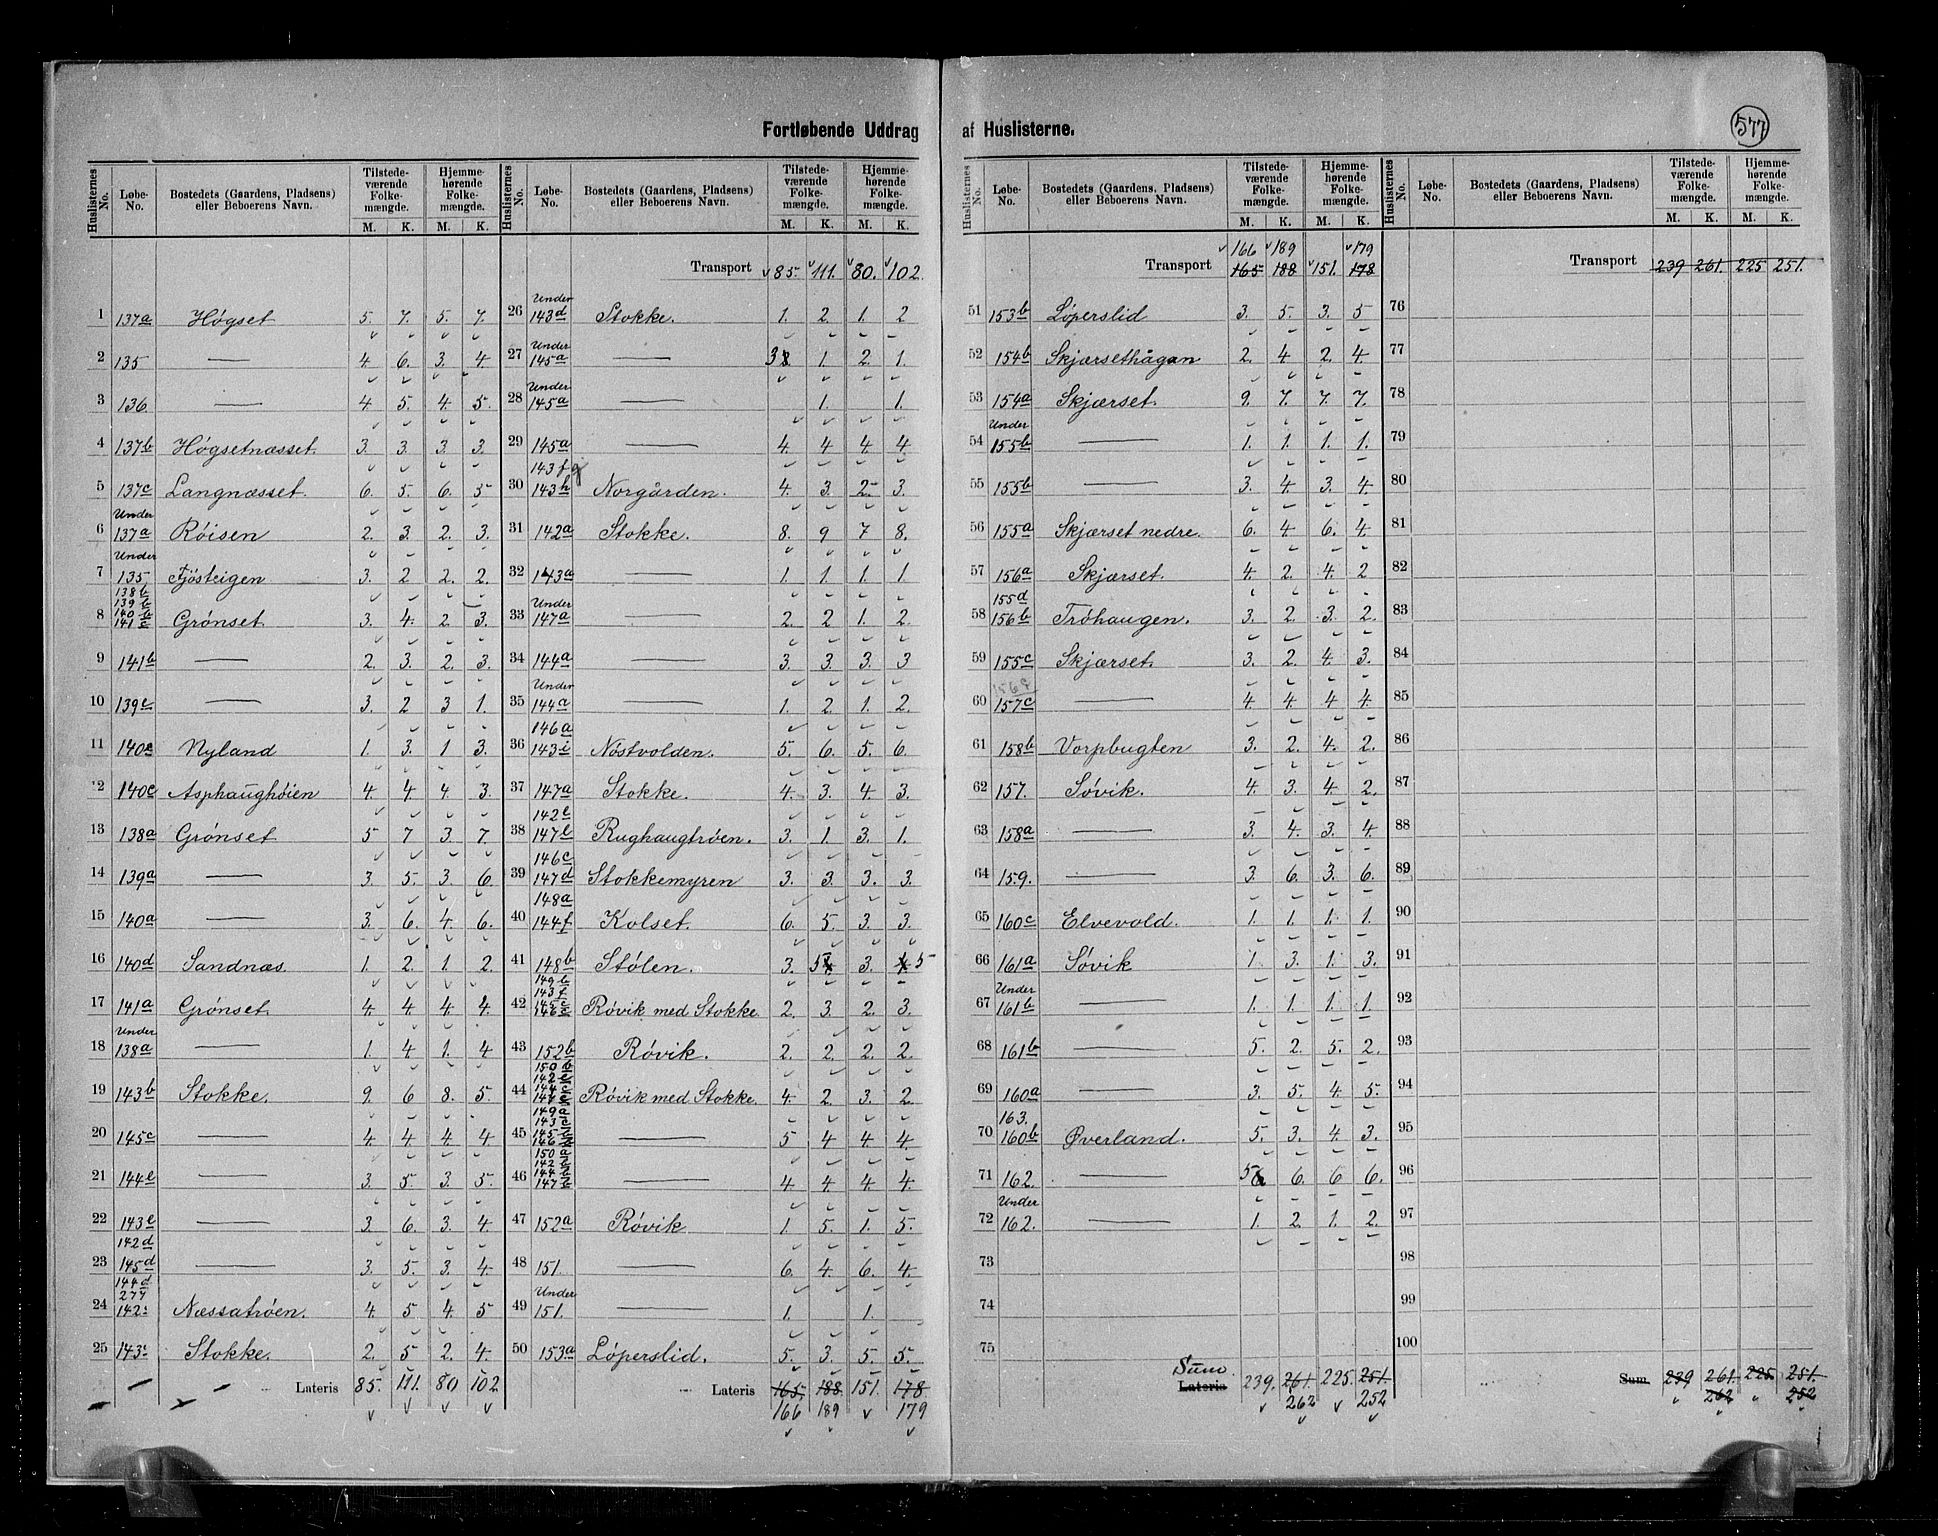 Fortløbende Uddrag af Huslisterne.
577
Huslisternes No. | Løbe-No. | Bostedets (Gaardens, Pladsens) eller Beboerens Navn. | Tilstedeværende Folkemængde. M. K. | Hjemmehørende Folkemængde. M. K.
1 137a Høgset 5. 7. 5. 7.
2 135 — 4. 6. 3. 4.
3 136 — 4. 5. 4. 5.
4 137b Høgsetnæsset. 3. 3. 3. 3.
5 137c Langnæsset. 6. 5. 6. 5
6 Under 137a Røisen 2. 3. 2. 3.
7 Under 135 Fjøsteigen 3. 2 2. 2.
8 138b 139b 140b 141c Grønset. 3. 4. 2 3.
9 141b — 2. 3. 2. 3.
10 139c — 3. 2 3 1.
11 140e Nyland 1. 3. 1 3.
12 140c Asphaughøien 4. 4. 4. 3.
13 138a Grønset 5 7 3. 7.
14 139a — 3. 5. 3. 6
15 140a — 3. 6. 4. 6.
16 140d Sandnæs. 1. 2. 1. 2.
17 141a Grønset. 4. 4. 4. 4.
18 Under 138a — 1. 4 1. 4
19 143b Stokke. 9. 6 8. 5.
20 145c — 4. 4. 4. 4
21 144e — 3. 5. 3. 5.
22 143e — 3 6. 3. 4
23 142d 145d — 3. 5. 3. 4.
24 144d 277 142 Næssatrøen. 4. 5 4. 5
25 143 Stokke. 2. 5 2. 4.
Lateris 85. 111. 80 102.
Transport 85. 111. 80. 102.
26 Under 143d Stokke. 1. 2 1. 2
27 Under 145a — 3 1. 2. 1.
28 Under 145a — 1. 1.
29 145a — 4. 4 4. 4
30 143f g 143h Norgården. 4. 3. 2 3.
31 142a Stokke. 8. 9 7 8.
32 143a — 1. 1. 1. 1
33 Under 147a — 2. 2 1. 2
34 144a — 3. 3. 3. 3
35 Under 144a — 1. 2. 1. 2.
36 146a 143i Nøstvolden. 5. 6. 5. 6.
37 147a Stokke. 4. 3. 4. 3.
38 142e 147e Rughaugtrøen. 3. 1. 3. 1.
39 146c 147d Stokkemyren 3. 3. 3. 3.
40 148a 144f Kolset. 6. 5. 3. 3.
41 148b Stølen. 3. 5 3. 5
42 149b 143f 145c 146c Røvik med Stokke. 2 3. 2. 3.
43 152b Røvik. 2. 2. 2. 2.
44 Røvik med Stokke. 4. 2 3. 2
45 — 5 4 4. 4.
46 — 4. 4. 4. 4.
47 152a Røvik 1. 5. 1. 5.
48 151. — 6. 4. 6. 4
49 Under 151. — 1. 1.
50 153a Løperslid. 5. 3. 5. 5.
Lateris 165. 188. 151. 178
166 189 179
166 189 179
Transport 165 188 151. 178
51 153b Løperslid 3. 5. 3. 5
52 154b Skjærsethågan 2. 4 2. 4.
53 154a Skjærset. 9. 7. 7. 7.
54 Under 155b — 1. 1. 1. 1.
55 155b — 3. 4. 3. 4.
56 155a Skjærset nedre. 6. 4 6. 4.
57 156a Skjærset. 4. 2. 4. 2
58 155d 156b Trøhaugen. 3. 2. 3. 2.
59 155c Skjærset. 3. 2. 4. 3.
60 157c — 4. 4. 4. 4
61 158b Vorpbugten 3. 2. 4. 2.
62 157. Søvik. 4. 3. 4. 2.
63 158a — 3. 4. 3. 4
64 159. — 3. 6. 3. 6.
65 160c Elvevold. 1. 1. 1. 1.
66 161a Søvik 1 3. 1. 3.
67 Under 161b — 1. 1. 1. 1.
68 161b — 5. 2. 5. 2.
69 160a — 3. 5. 4 5.
70 163. 160b Øverland. 5. 3. 4. 3.
71 162. — 5 6. 6 6.
72 Under 162. — 1. 2. 1. 2.
73
74
75
Sum Lateris 239. 261. 225. 251.
262 252
Transport 239 261. 225 251.
76
77
78
79
80
81
82
83
84
85
86
87
88
89
90
91
92
93
94
95
96
97
98
99
100
Sum. 239 261. 225. 251.
262 252